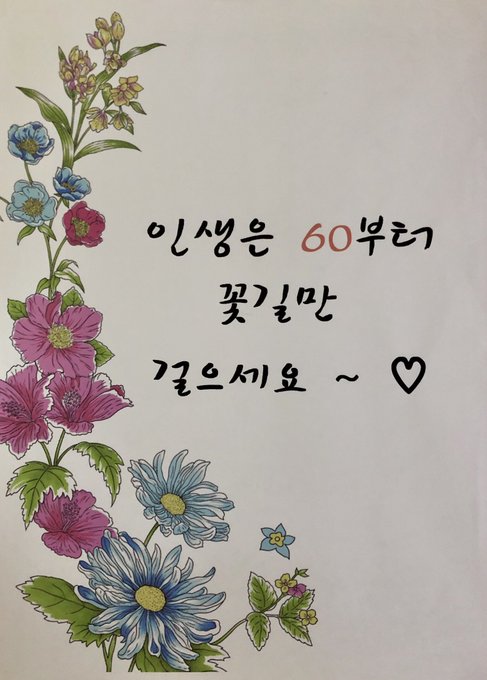 인생은 60부터
꽃길만
걸으세요 ~ ♡